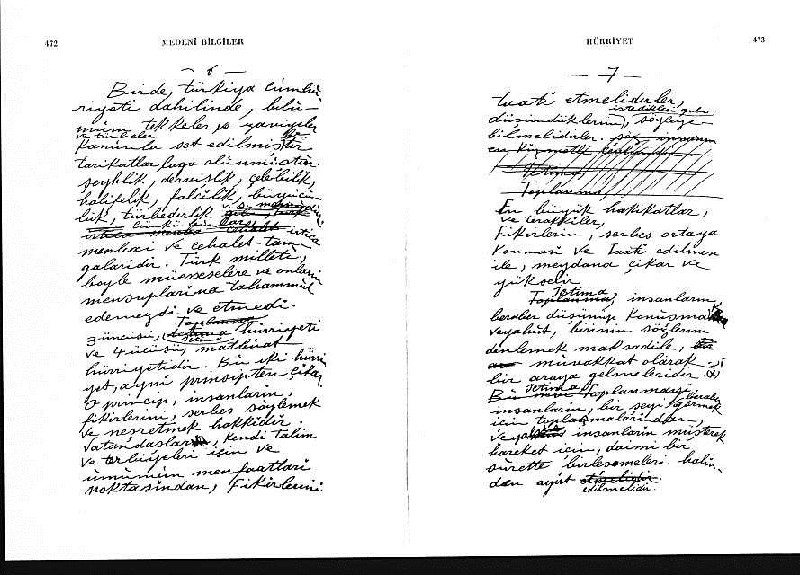 472
MEDENİ BİLGİLER
— 6 —
Birde, türkiya cümhu
riyeti dahilinde, bilû-
mum tekkeler ve zaviyeler
ve türbeler
kanunla set edilmiştir
tarikatlar lağv olunmuştur
şeyhlik, dervişlik, çelebilik,
halifelik, falcılık, büyücü-
lük, türbedarlık v.s. memnudur,
çünki bunlar irtica
menbaı ve cehalet tam
galarıdır. Türk milleti,
böyle müesseselere ve onların
mensuplarına tahammül
edemezdi ve etmedi.
Toplanma
3 üncüsü, hürriyeti
ve 4 üncüsü, matbuat
hürriyetidir. Bu iki hürri
yet, aynı prinsipten çıkar
O prinsip, insanların,
fikirlerini, serbes söylemek
ve neşretmek hakkıdır
Vatandaşlar, kendi talim
ve terbiyeleri için ve
umumun menfaatları
noktasından, fikirlerini
HÜRRİYET
473
— 7 —
taati etmelidirler,
istedikleri gibi
düşündüklerini, söyleye-
bilmelidirler.
İçtima
Toplanma
En büyük hakikatlar,
ve terakkiler,
fikirlerin, serbes ortaya
konması ve taati edilmesi
ile, meydana çıkar ve
yükselir
İçtima
Toplanma, insanların,
beraber düşünüp konuşma
veyahut, birinin sözlerini
dinlemek maksadile,
muvakkat olarak
bir araya gelmeleridir
İçtimaı
toplanmayı
insanların, bir şeyi görmek
için toplanmalarından
veya insanların müşterek
hareket için, daimi bir
surette birleşmeleri halin-
den ayırt etmelidir
edilmelidir.